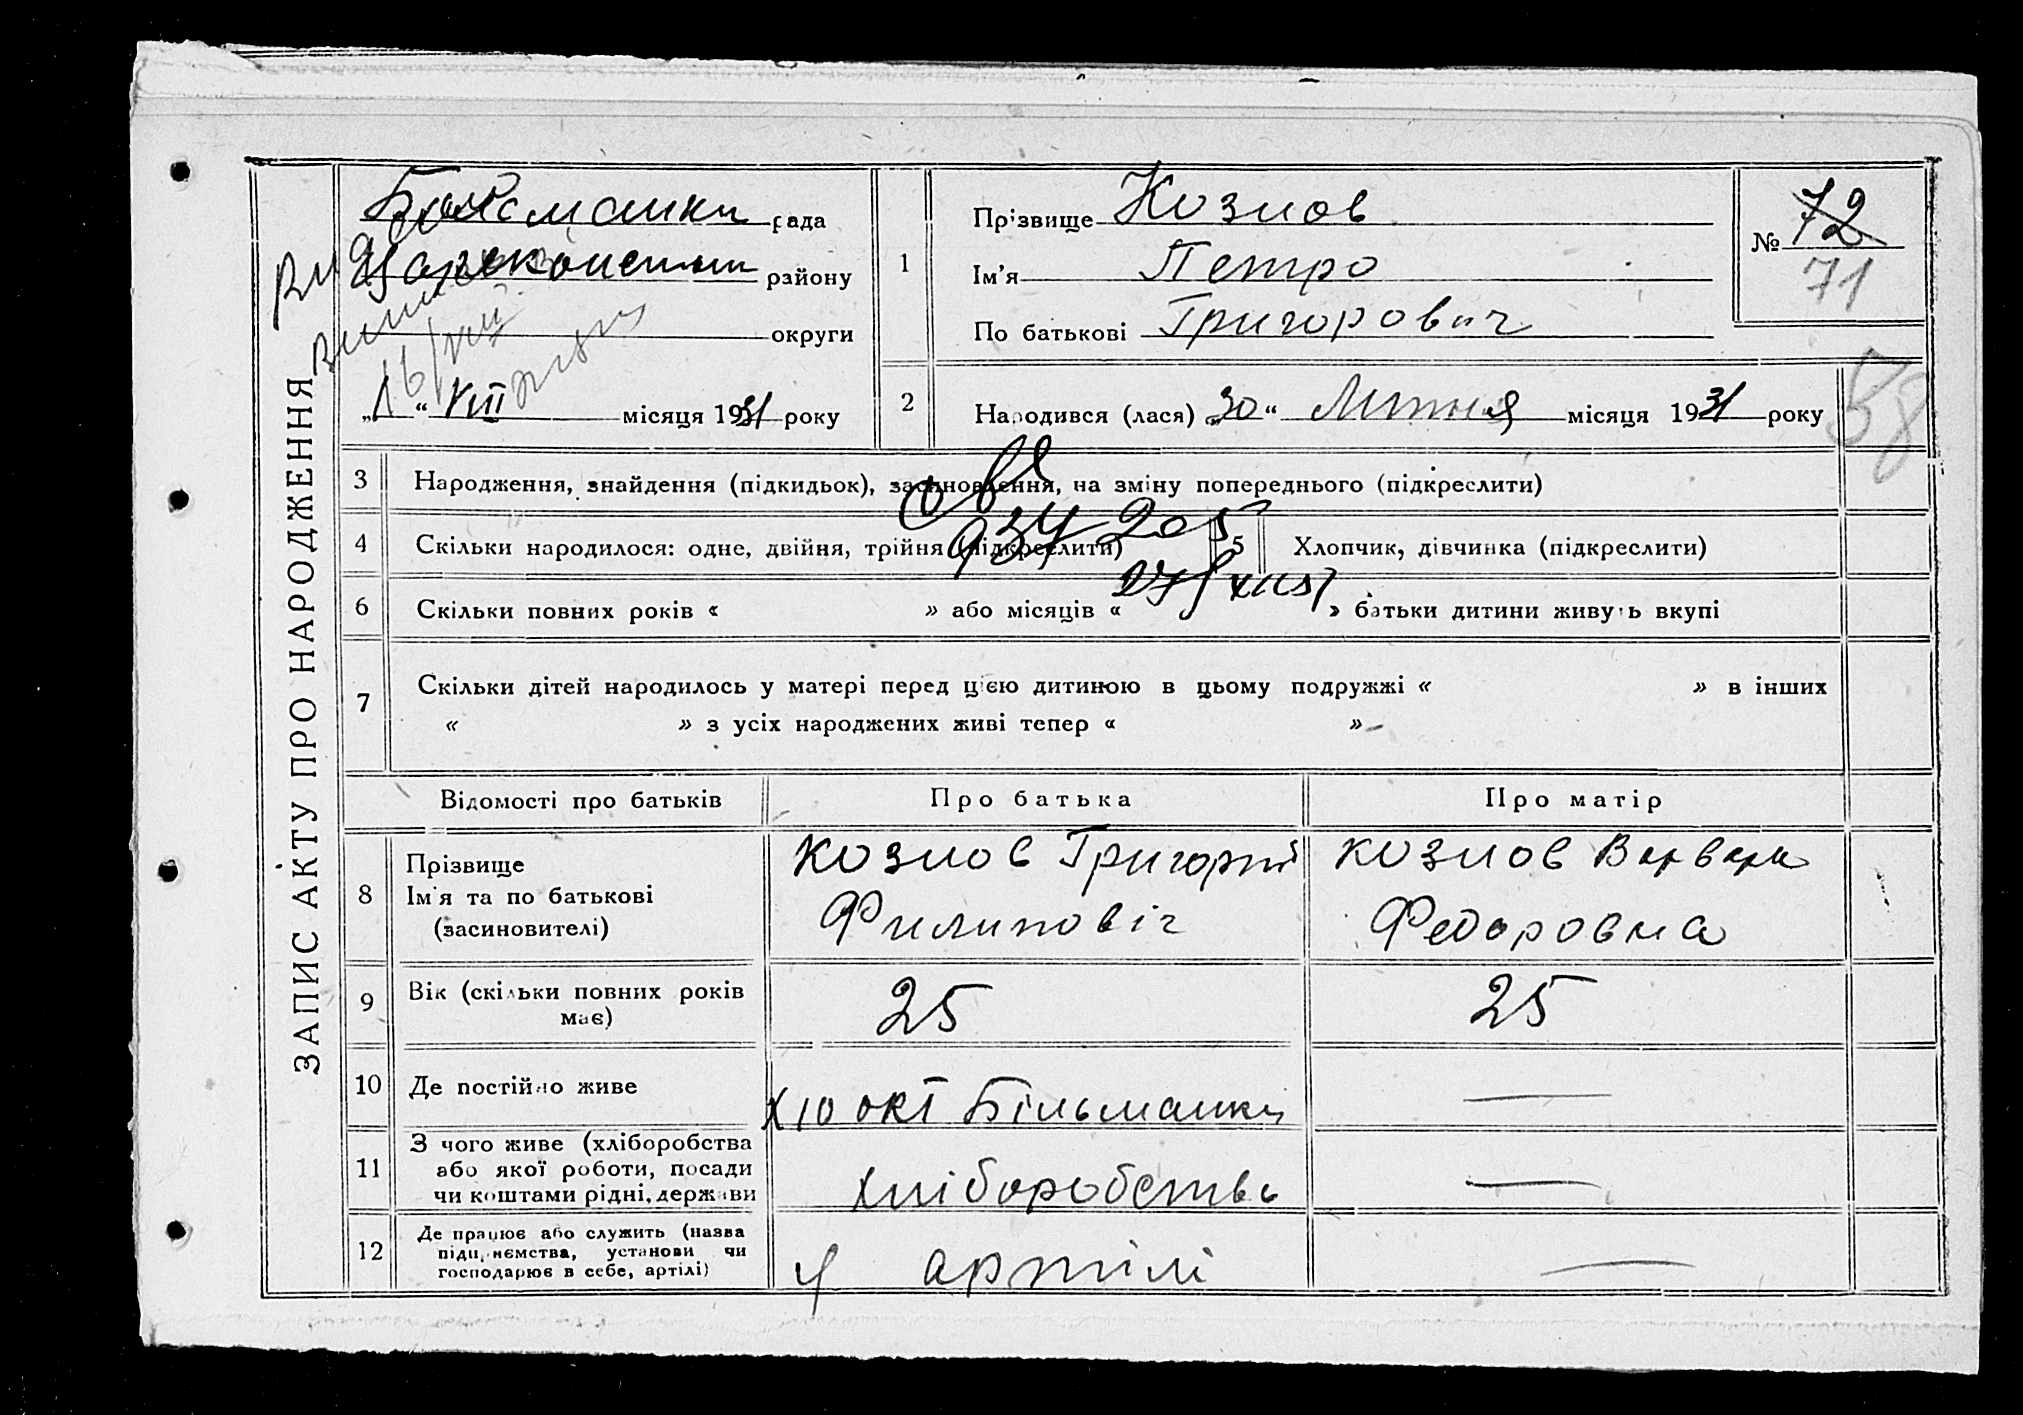 ЗАПИС АКТУ ПРО НАРОДЖЕННЯ
рада
району
округи
„1“ VIII місяця 1931 року
1
Прізвище Козлов
Ім’я Петро
По батькові Григорович
№ 72
71
2
Народився (лася) „30“ Липня місяця 1931 року
58
3 Народження, знайдення (підкидьок), засиновлення, на зміну попереднього (підкреслити)
4 Скільки народилося: одне, двійня, трійня (підкреслити)
5 Хлопчик, дівчинка (підкреслити)
6 Скільки повних років « » або місяців « » батьки дитини живуть вкупі
7 Скільки дітей народилось у матері перед цією дитиною в цьому подружжі « » в інших
« » з усіх народжених живі тепер « »
Відомості про батьків Про батька Про матір
8 Прізвище
Ім’я та по батькові
(засиновителі)
Козлов Григорій
Филиповіч
Козлов Варвара
Федоровна
9 Вік (скільки повних років
має)
25 25
10 Де постійно живе
Х 10 окт Більманки —
11 З чого живе (хліборобства
або якої роботи, посади
чи коштами рідні, держави
хліборобство —
12 Де працює або служить (назва
підприємства, установи чи
господарює в себе, артілі)
У артілі —